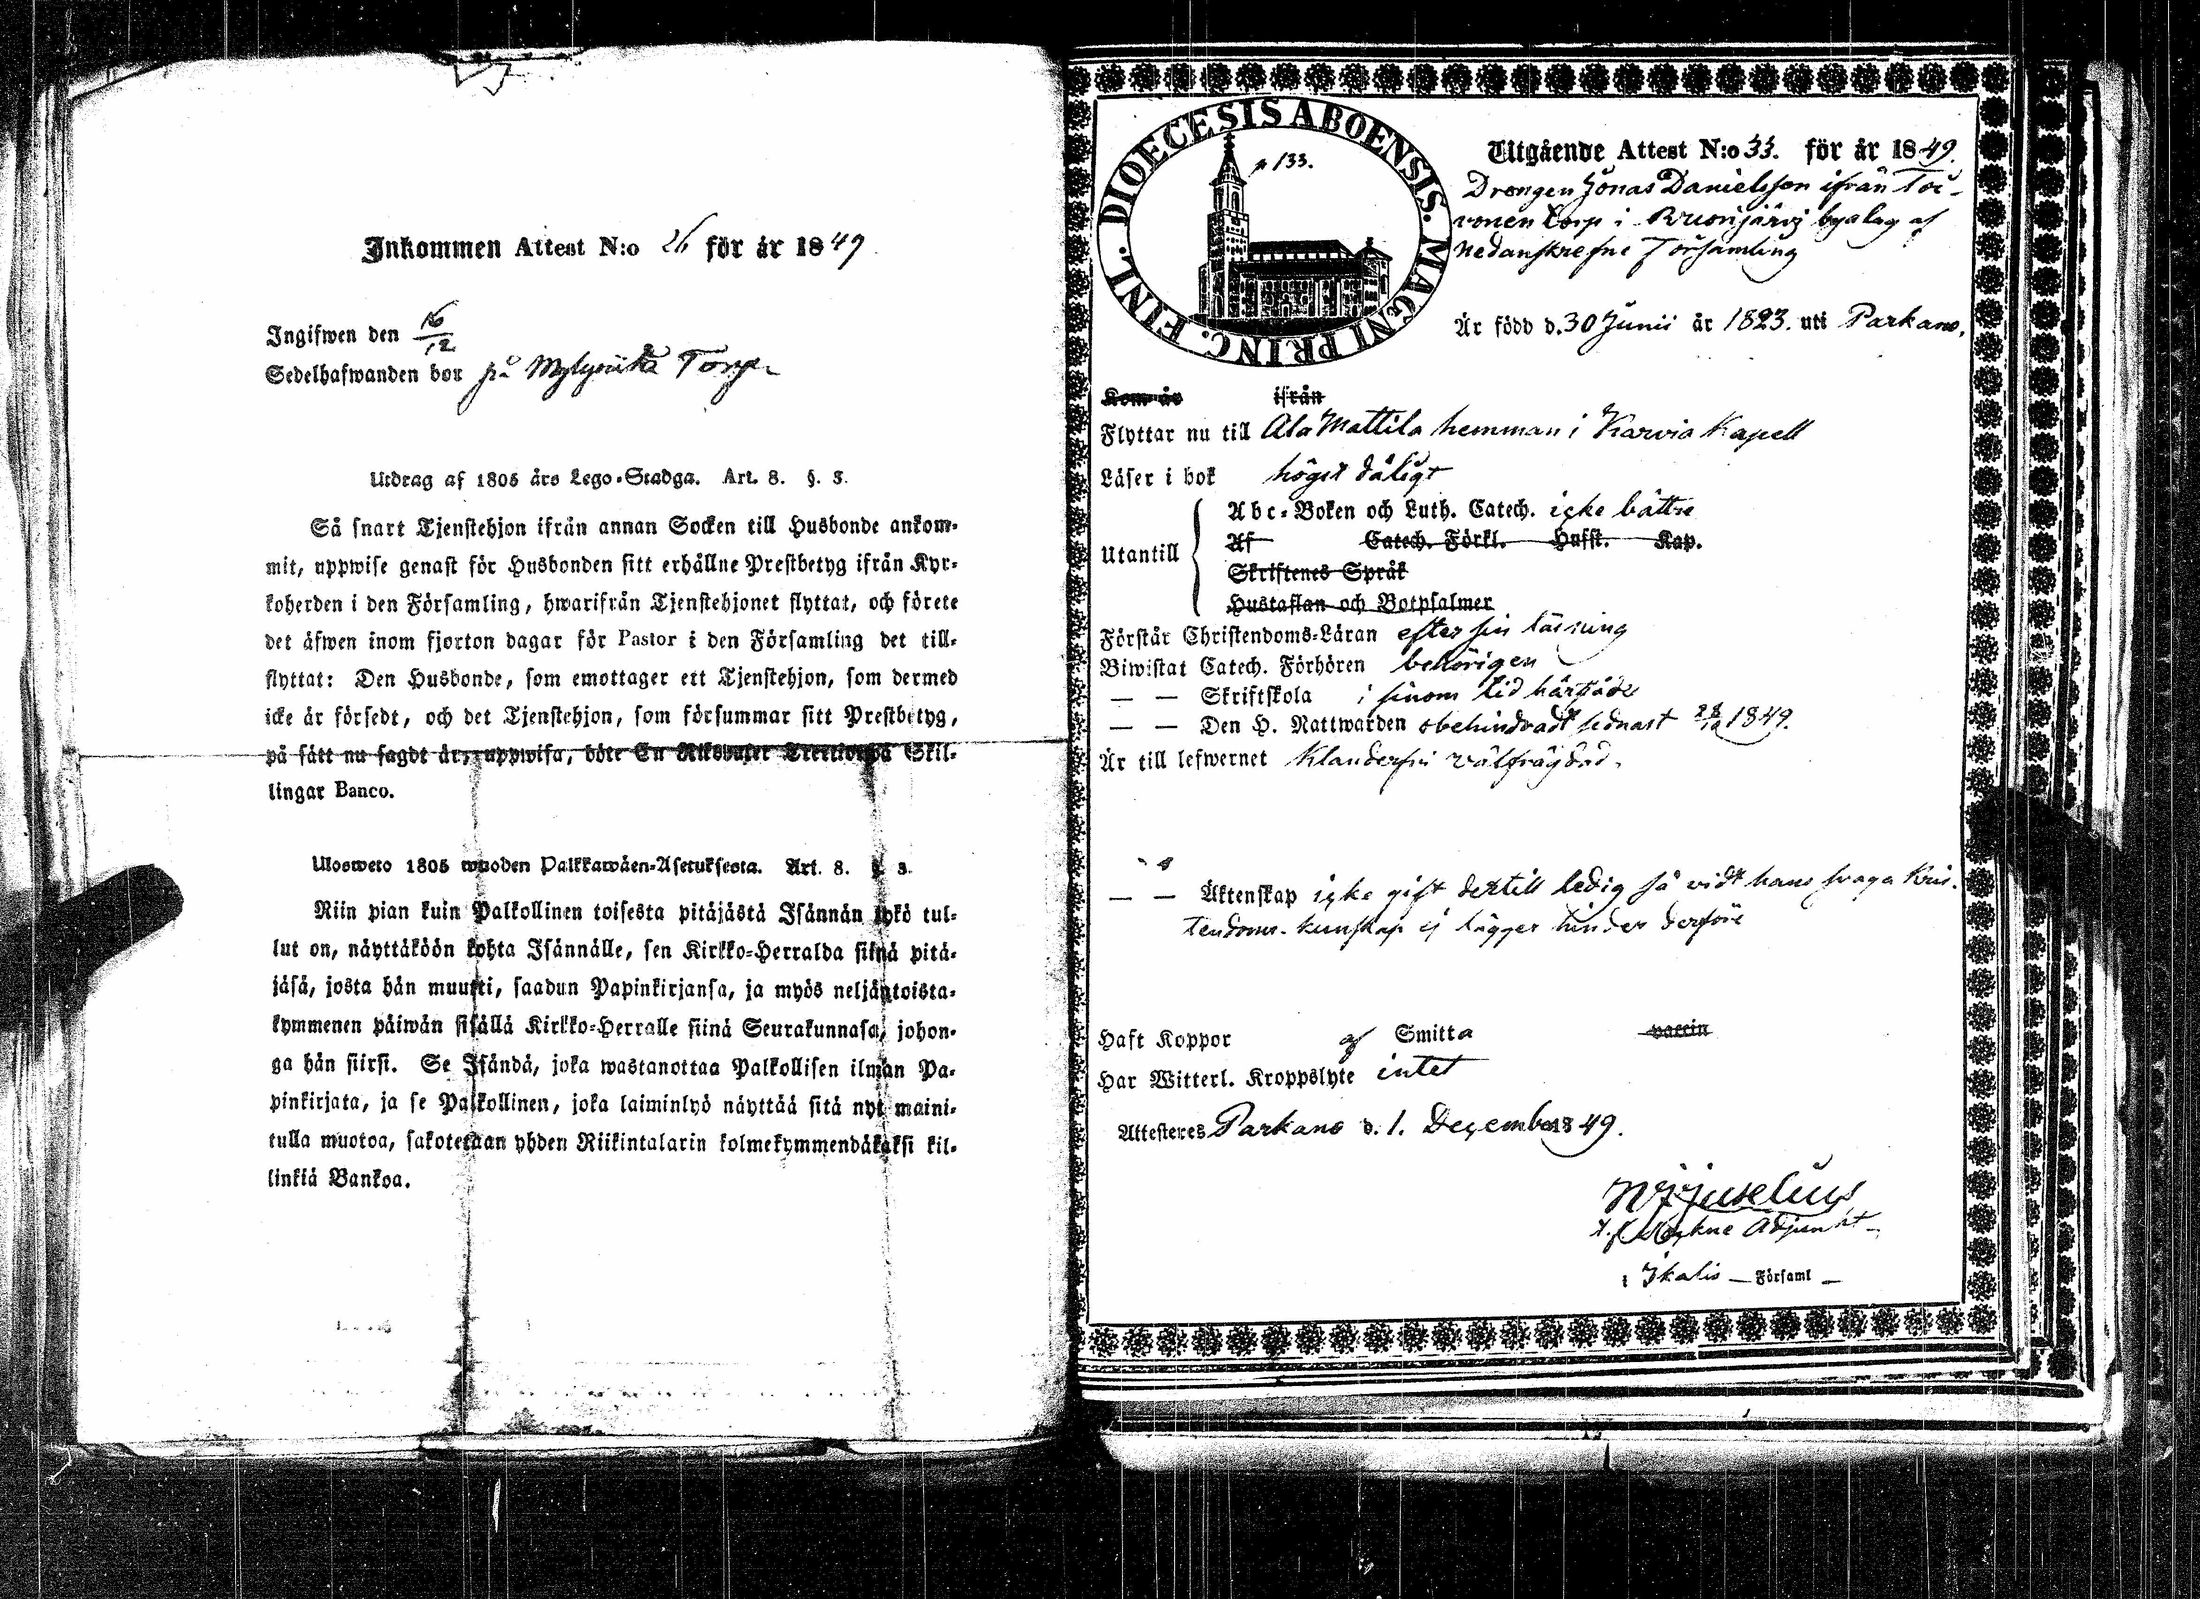 Inkommen Attest N:o 26 för år 1849.
Ingifwen den 16/12
Sedelhafwanden bor på Torp
Utdrag af 1805 års Lego-Stadga. Art. 8. §. 3.
Så snart Tjenstehjon ifrån annan Socken till Husbonde ankom-
mit, uppwise genast för Husbonden sitt erhållne Prestbetyg ifrån Kyr-
koherden i den Församling, hwarifrån Tjenstehjonet flyttat, och förete
det äfwen inom fjorton dagar för Pastor i den Församling det till-
flyttat: Den Husbonde, som emottager ett Tjenstehjon, som dermed
icke är försedt, och det Tjenstehjon, som försummar sitt Prestbetyg,
på sätt nu sagdt är, uppwisa, böte En Riksdaler Trettiotwå Skil-
lingar Banco.
Ulosweto 1805 wuoden Palkkawäen-Asetuksesta. Art. 8. §. 3.
Niin pian kuin Palkollinen toisesta pitäjästä Isännän tykö tul-
lut on, näyttäköön kohta Isännälle, sen Kirkko-Herralda siinä pitä-
jäsä, josta hän muutti, saadun Papinkirjansa, ja myös neljäntoista-
kymmenen päiwän sisällä Kirkko-Herralle siinä Seurakunnasa, johon-
ga hän siirsi. Se Isändä, joka wastanottaa Palkollisen ilman Pa-
pinkirjata, ja se Palkollinen, joka laiminlyö näyttää sitä nyt maini-
tulla muotoa, sakotetaan yhden Riikintalarin kolmekymmendäkaksi kil-
linkiä Bankoa.
DIOECESIS ABOENSIS. MAGNI PRINC. FINL.
p 133.
Utgående Attest N:o 33. för år 1849.
Drengen Jonas Danielsson ifrån Toi-
vonen torp i byalag af
nedanskrefne Församling
Är född d. 30 Junii år 1823. uti Parkano.
Kom år ifrån
Flyttar nu till Ala Mattila hemman i Karvia Kapell
Läser i bok högst dåligt
Utantill
Abc-Boken och Luth. Catech. icke bättre
Af Catech. Förkl. Husst. Kap.
Skriftenes Språk
Hustaflan och Botpsalmer
Förstår Christendoms-Läran efter sin läsning
Biwistat Catech. Förhören behörigen
— — Skriftskola i sinom tid härstädes
— — Den H. Nattwarden obehindradt sednast 28/10 1849.
Är till lefwernet klanderfri välfrägdad.
— — Äktenskap icke gift dertill ledig så vidt hans svaga Kris-
tendoms-kunskap ej lägger hinder derföre
Haft Koppor af Smitta vaccin
Har Witterl. Kroppslyte intet
Attesteres Parkano d. 1. December 1849.
Juselius
Adjunct
i Ikalis Församl